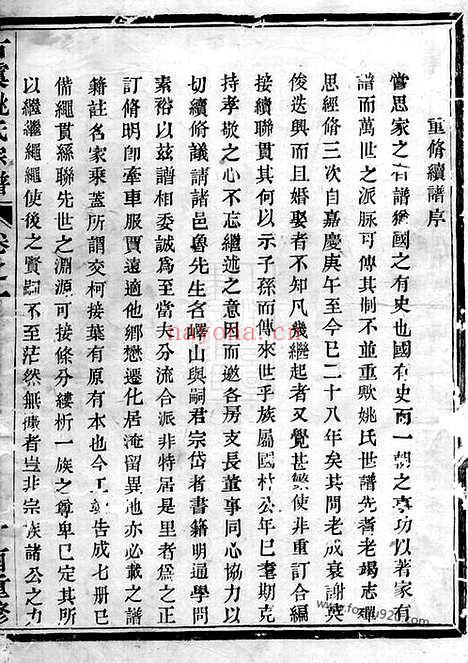 重脩續譜序
嘗思家之有譜猶國之有史也國有史而一朝之事功以著家有
譜而萬世之派脉可傳其制不並重歟姚氏世譜先耆老竭志殫
思經脩三次自嘉慶庚午至今已二十八年矣其間老成衰謝英
俊迭興而且婚娶者不知凡幾繼起者又覺甚繁使非重訂合編
接續聯貫其何以示子孫而傳來世乎族屬國杜公年已耄期克
持孝敬之心不忘繼述之意因而邀各房支長董事同心協力以
切續脩議請諸邑魯先生名繹山與嗣君宗岱者書籍明通學問
素裕以茲譜相委誠為至當夫分流合派非特居是里者為之正
訂脩明即牽車服賈遠適他鄉懋遷化居淹留異地亦必載之譜
籍註名家乘蓋所謂交柯接葉有原有本也今工告成七册已
備繩貫絲聯先世之淵源可接條分縷析一族之尊卑已定其所
以繼繼繩繩使後之賢嗣不至茫然無據者豈非宗族諸公之力
虞姚氏宗譜
卷之一
重修
hayona.cn
www.fozu920.com